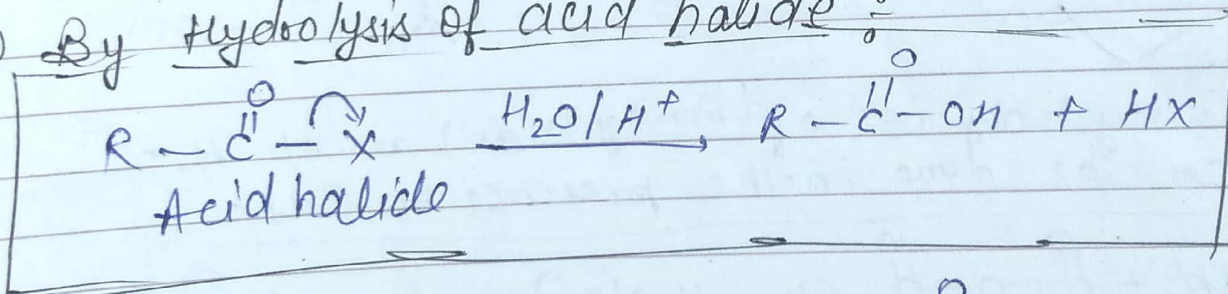 ) By Hydrolysis of acid halide :
O O
R - C - X H2O/H+ R - C - OH + HX
Acid halide